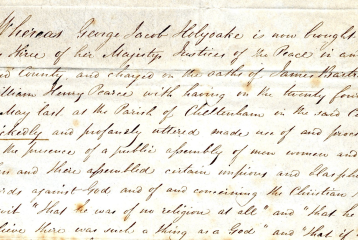 Whereas George Jacob Holyoake is now brought
Three of her Majestys Justices of the Peace in an
County, and charged on the oaths of James Bart
William Henry Pearce with having on the twenty four
May last at the Parish of Cheltenham in the said Co
ickedly and profanely uttered made use of and proc
the presence of a public assembly of men women and
and there assembled certain impious and blasph
rds against God and of and concerning the Christian
wit "that he was of no religion at all" and "that he
lieve there was such a thing as a God" and "that if